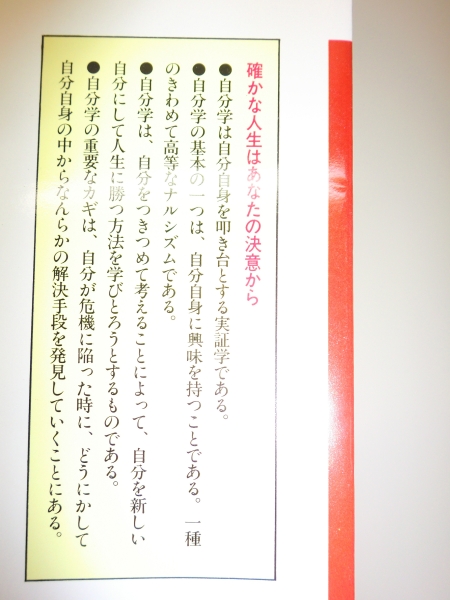 確かな人生はあなたの決意から
●自分学は自分自身を叩き台とする実証学である。
●自分学の基本の一つは、自分自身に興味を持つことである。一種
のきわめて高等なナルシズムである。
●自分学は、自分をつきつめて考えることによって、自分を新しい
自分にして人生に勝つ方法を学びとろうとするものである。
●自分学の重要なカギは、自分が危機に陥った時に、どうにかして
自分自身の中からなんらかの解決手段を発見していくことにある。